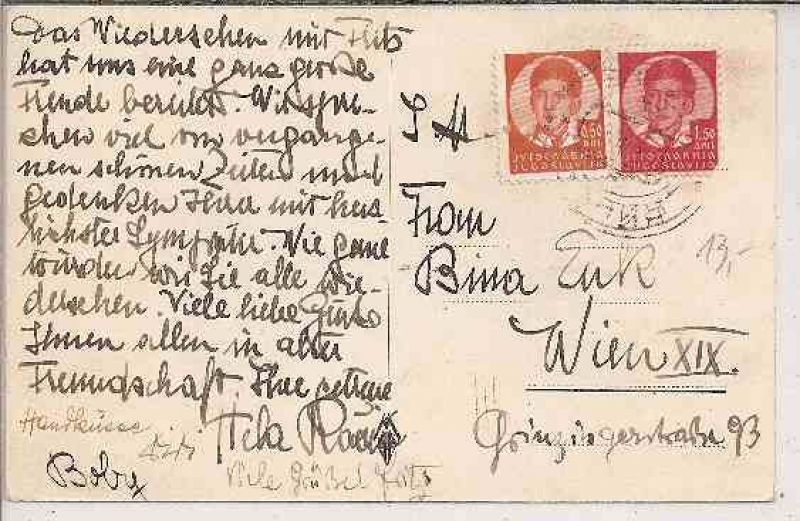 Das Wiedersehen mit Fritz
hat uns eine ganz große
Freude bereitet. Wir spre-
chen viel von vergange-
nen schönen Zeiten und
gedenken Ihrer mit herz-
lichster Sympathie. Wie gerne
würden wir Sie alle wie-
dersehen. Viele liebe Grüße
Ihnen allen in alter
Freundschaft. Ihre getreue
Handküsse
Boby
Viele Grüße! Fritz
0.50
ЈУГОСЛАВИЈА
JUGOSLAVIJA
1.50
ДИН
ЈУГОСЛАВИЈА
JUGOSLAVIJA
Frau
Bina
Wien XIX.
Grinzingerstraße 93
13,-